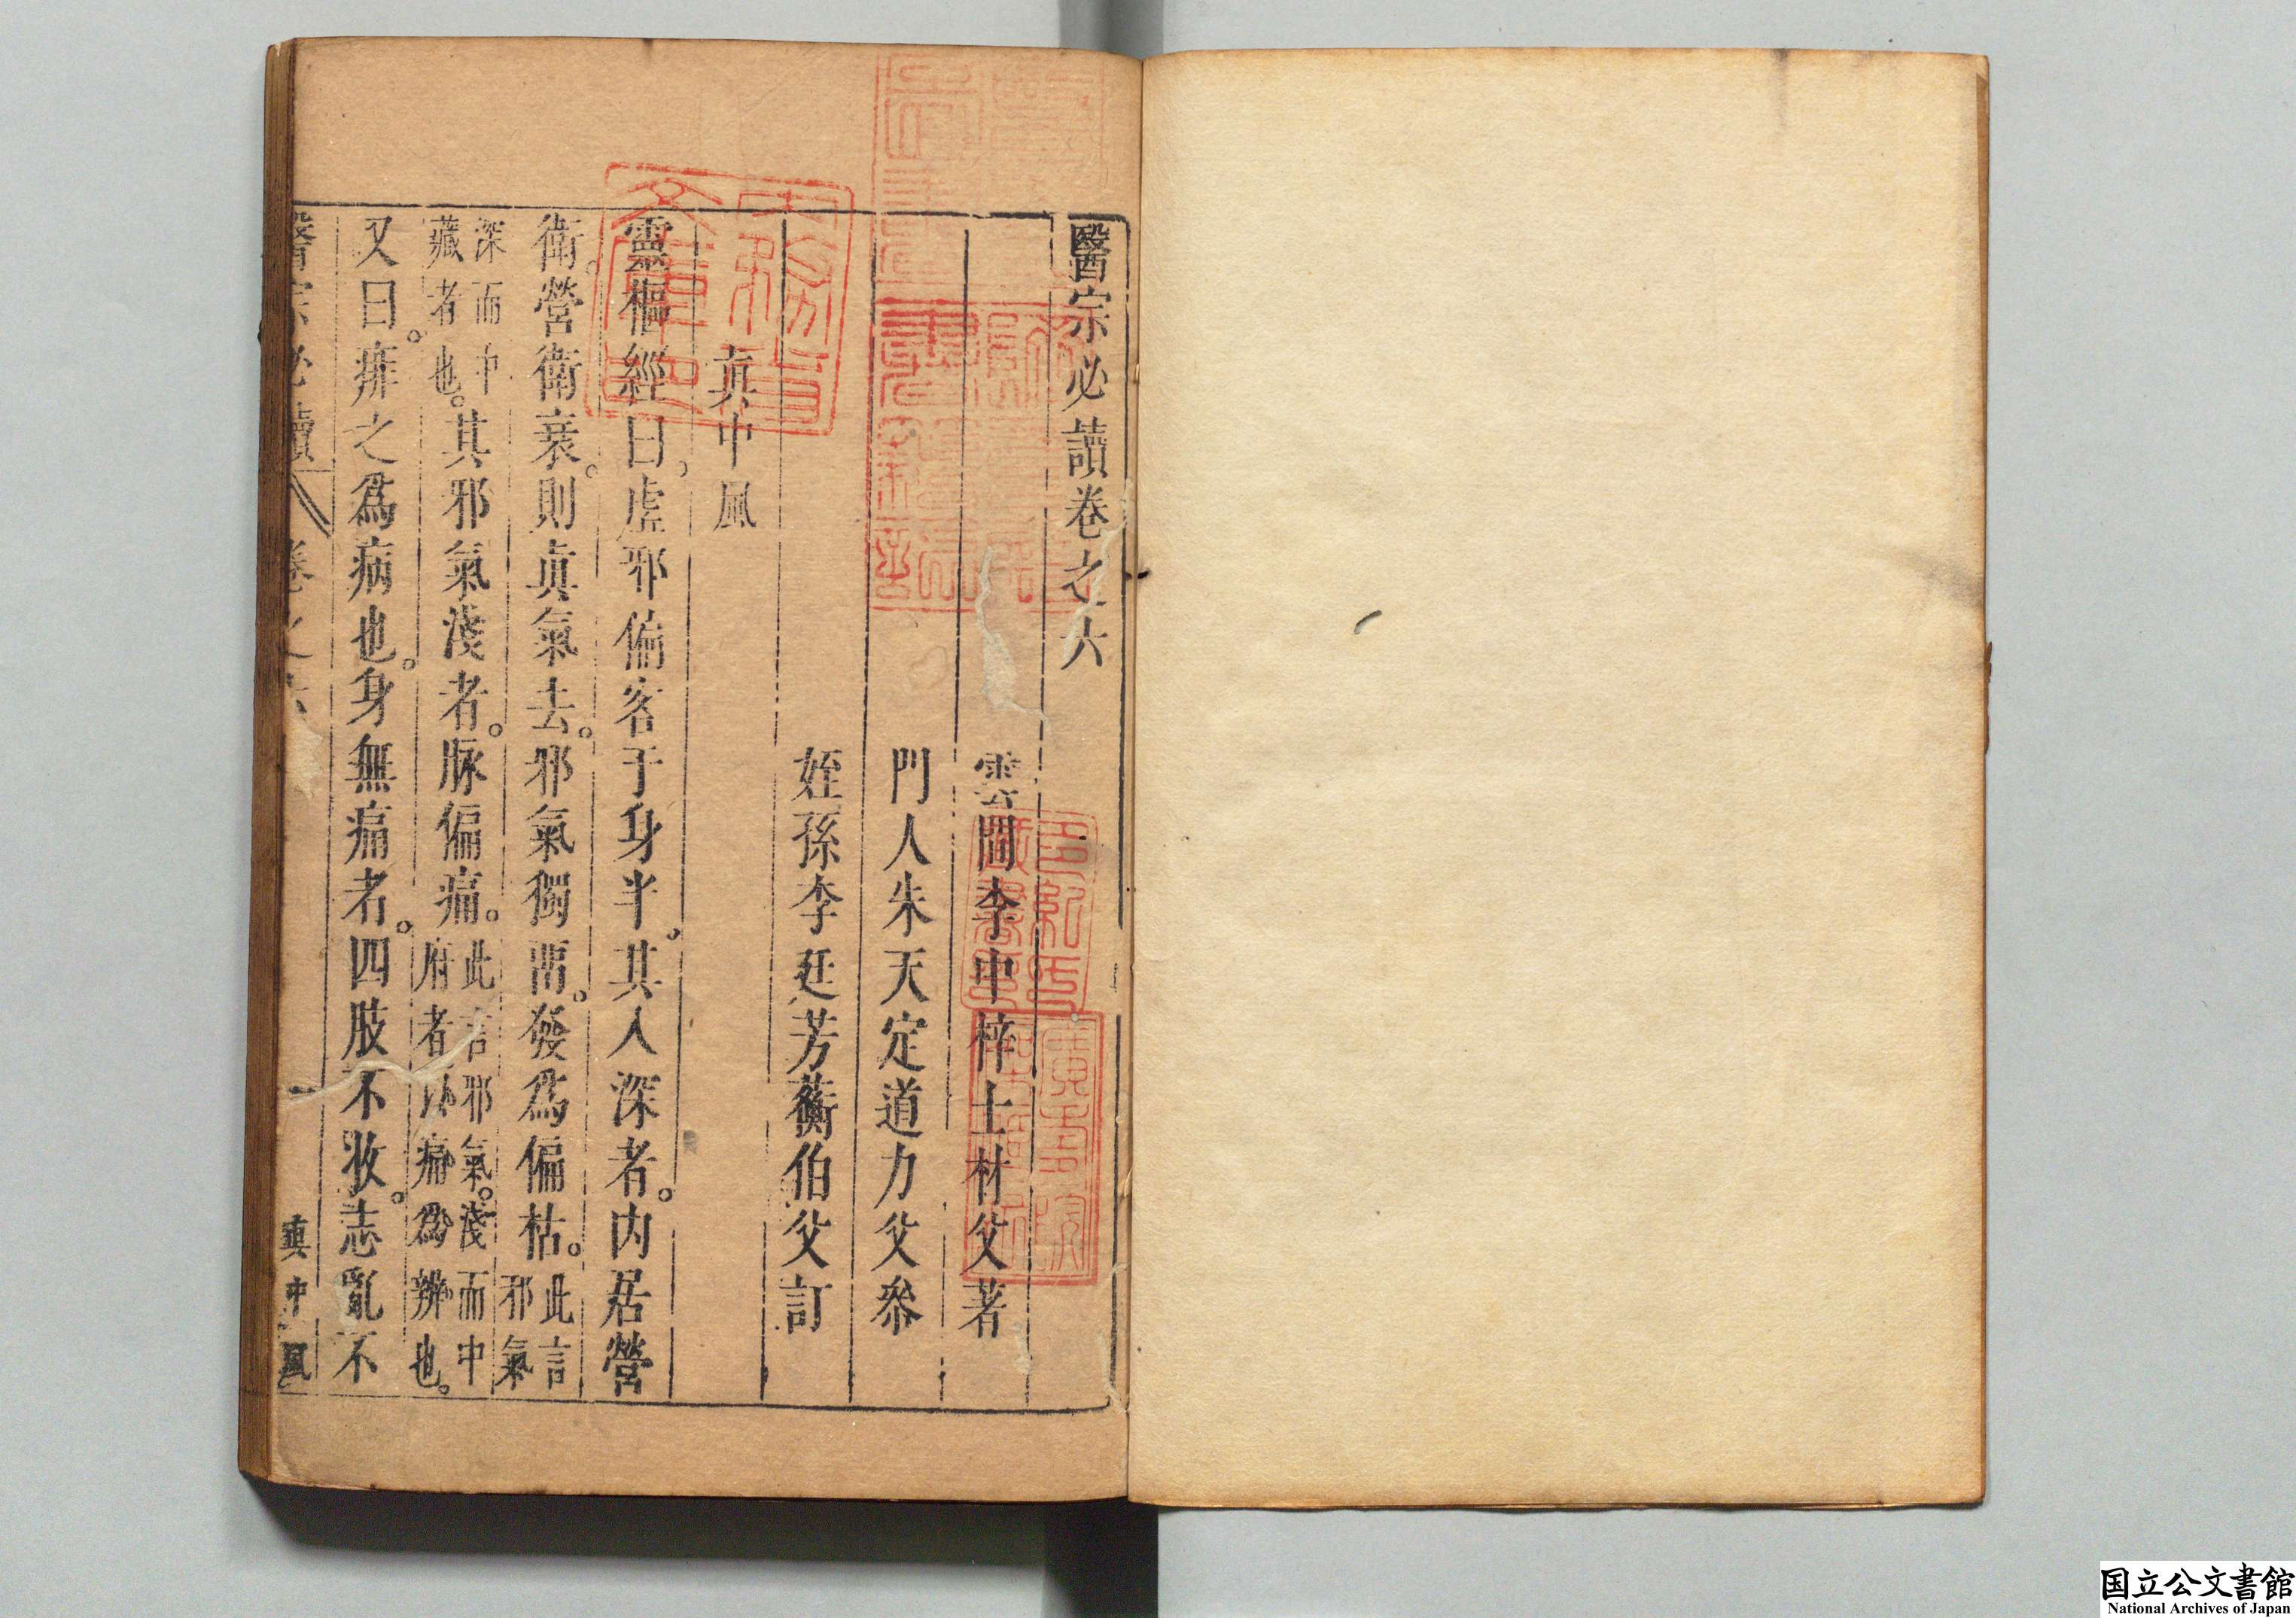 醫宗必讀卷之六
雲間李中梓士材父著
門人朱天定道力父叅
姪孫李廷芳蘅伯父訂
真中風
靈樞經曰虛邪偏客于身半其入深者。內居營
衛。營衛衰。則真氣去。邪氣獨畱。發為偏枯。此言邪氣
深而中藏者也。其邪氣淺者。脉偏痛。此言邪氣。淺而中府者以痛為辨也。
又曰。痱之為病也。身無痛者。四肢不收。志亂不
醫宗必讀 卷之六 真中風
内務省文庫印
国立公文書館
National Archives of Japan